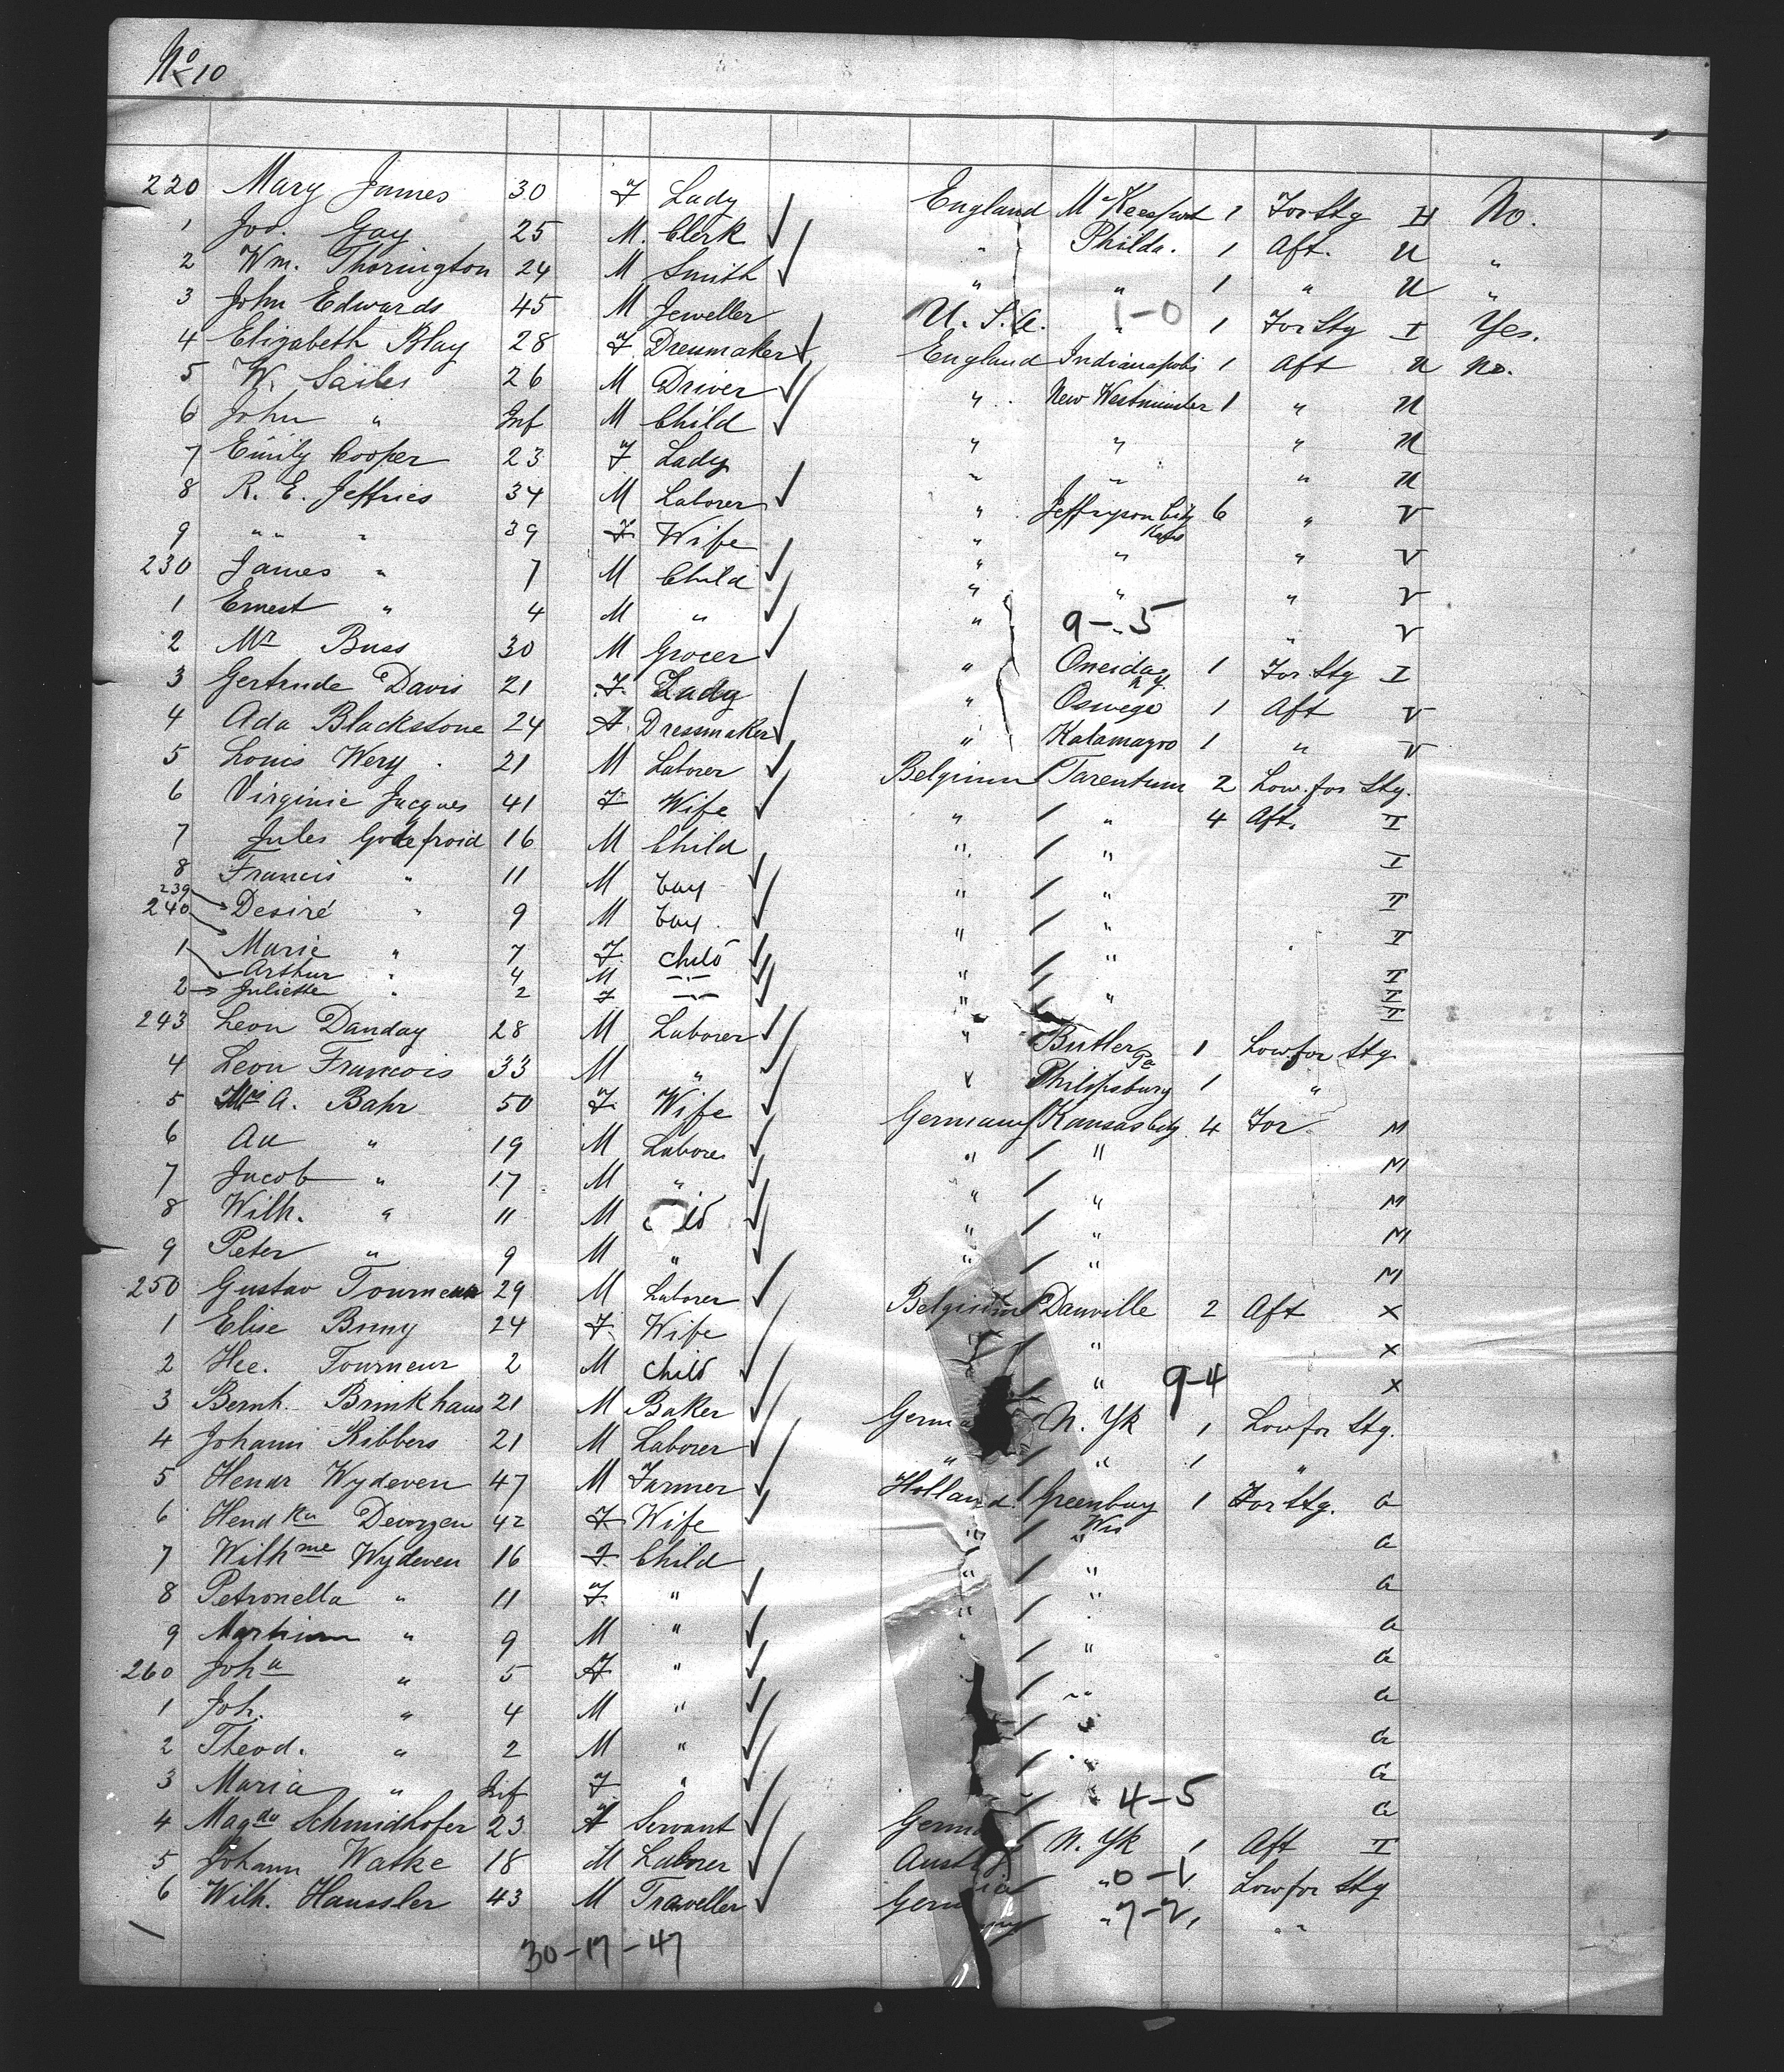 No 10
220 Mary James 30 F Lady England McKeesport 1 For Stg H No.
1 Jos. Gay 25 M. Clerk " Philda. 1 Aft. U "
2 Wm. Thorington 24 M Smith " " 1 " U "
3 John Edwards 45 M Jeweller U.S.A. " 1-0 1 For Stg I Yes.
4 Elizabeth Blay 28 F Dressmaker England Indianapolis 1 Aft U No.
5 W. Sailes 26 M Driver " New Westminster 1 " U
6 John " Inf M Child " " " U
7 Emily Cooper 23 F Lady " " " U
8 R. E. Jeffries 34 M Laborer " Jefferson City 6 " V
9 " " " 39 F Wife " " " V
230 James " 7 M Child " " " V
1 Ernest " 4 M " " 9-5 " V
2 Mr Buss 30 M Grocer " Oneida N.Y. 1 For Stg I
3 Gertrude Davis 21 F. Lady " Oswego 1 Aft V
4 Ada Blackstone 24 F. Dressmaker " Kalamazoo 1 " V
5 Louis Wery 21 M Laborer Belgium Tarentum 2 Low. for Stg.
6 Virginie Jacques 41 F Wife " " 4 Aft. II
7 Jules Godefroid 16 M Child " " I
8 Francis " 11 M boy " " II
239 Desiré " 9 M boy " " II
240 Marie " 7 F. child " " II
1 Arthur " 4 M " " " II
2 Juliette " 2 F " " II
243 Leon Danday 28 M Laborer " Butler Pa 1 Low for Stg
4 Leon Francois 33 M " " Philipsburg 1 "
5 Mrs A. Bahr 50 F. Wife Germany Kansas City 4 For M
6 " 19 M Laborer " " M
7 Jacob " 17 M " " " M
8 Wilh. " 11 M " " M
9 Peter " 9 M " " " M
250 Gustav Tourneur 29 M Laborer Belgium Danville 2 Aft X
1 Elise 24 F. Wife " " X
2 Hee. Tourneur 2 M child " 9-4 X
3 Bernh. Brinkhaus 21 M Baker Germa N. Yk 1 Low for Stg.
4 Johann Ribbers 21 M Laborer " " 1 "
5 Wydeven 47 M Farmer Holland Greenbay Wis 1 For Stg. G
6 42 F Wife " " G
7 Wilhme Wydeven 16 F. Child " " G
8 Petronella " 11 F. " " " G
9 " 9 M " " " G
260 Joha " 5 F " " G
1 Joh. " 4 M " " G
2 Theod. " 2 M " " G
3 Maria " Inf F " " 4-5 G
4 Magda Schmidhofer 23 F Servant Germ N. Yk 1 Aft II
5 Johann Watke 18 M Laborer Austria " 0-1 Low for Stg
6 Wilh. Haussler 43 M Traveller Germany " 7-2 1 "
30-17-47